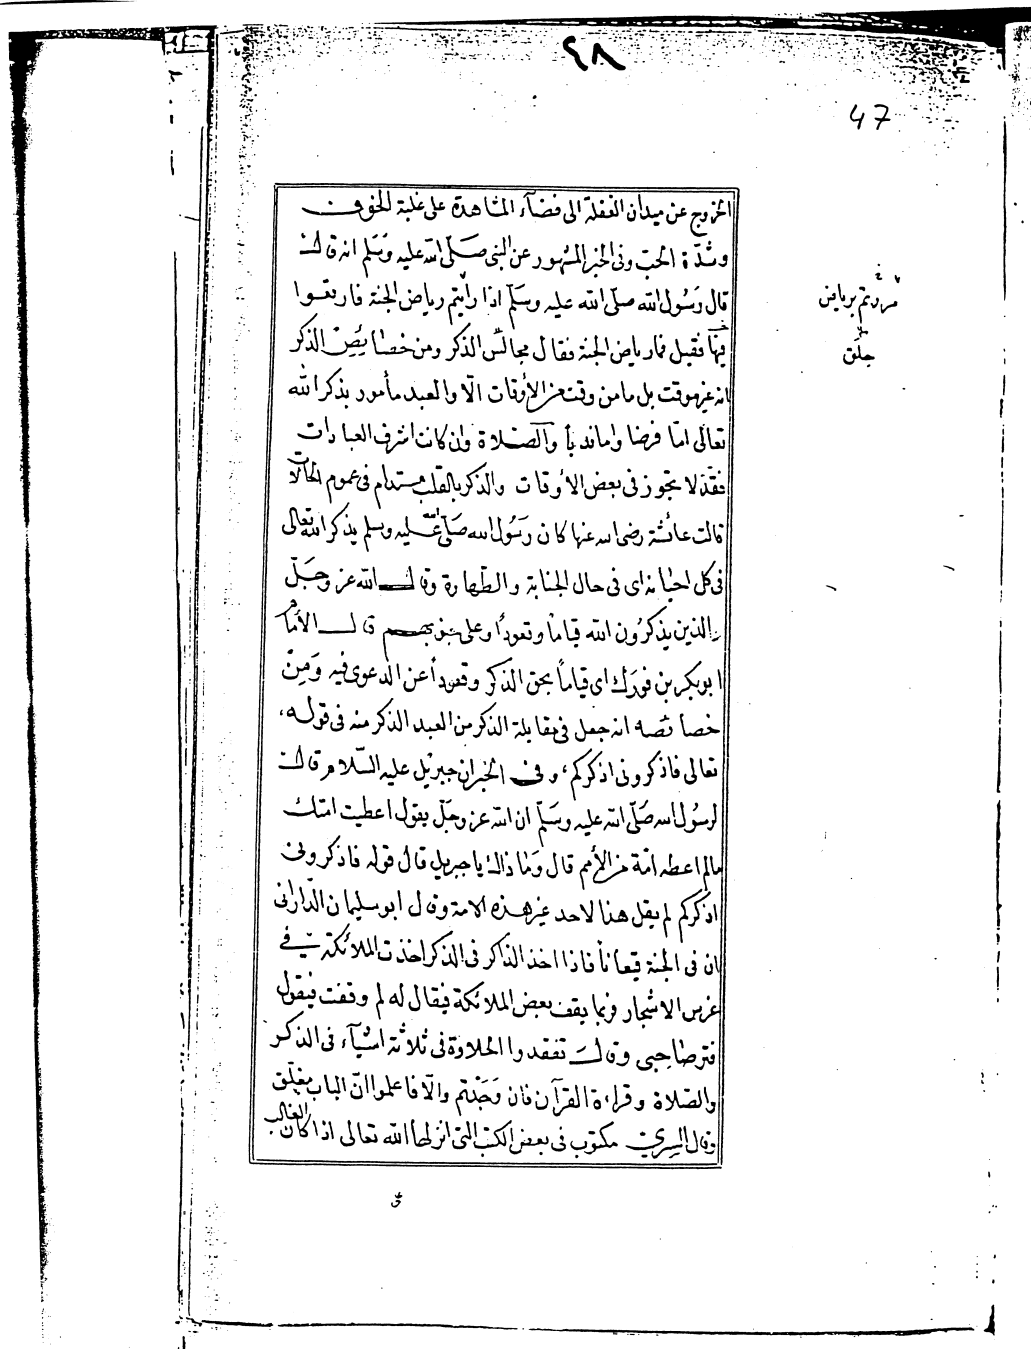 ٤٨
47
الخروج عن ميدان الغفلة الى فضآء المشاهدة على غلبة الخوف
وشدّة الحب وفى الخبر المشهور عن النبى صلّى الله عليه وسَلم انه قال
قال رَسُول الله صلّى الله عليه وسَلّم اذا رأيتم رياض الجنة فارتعوا
فيها فقيل فما رياض الجنة فقال مجالس الذكر ومن خصايصِ الذكر
انه غير موقت بل ما من وقت من الأوقات الّا والعبد مأمور بذكر الله
تعالى امّا فرضا واما ندباً والصّلاة وان كانت اشرف العبادات
فقد لا تجوز فى بعض الأوقات والذكر بالقلب مستدام فى عموم الحالات
قالت عائشة رضى الله عنها كان رَسُول الله صَلى الله عليه وسلم يذكر الله تعالى
فى كل احيانه اى فى حال الجنابة والطهارة وقال الله عز وجَلّ
الذين يذكرُون الله قياما وقعودًا وعلى جنوبهم قال الأمام
ابو بكر بن فورك اى قياماً بحق الذكر وقعوداً عن الدعوى فيه وَمِنْ
خصائصه انه جعل فى مقابلة الذكر من العبد الذكر منه فى قوله
تعالى فاذكرونى اذكركم، وفى الخبر ان جبريل عليه السّلام قال
لرسُول الله صَلّى الله عليه وسَلّم ان الله عز وجَلّ يقول اعطيت امتك
مالم اعطه امّة من الأمم قال وَما ذاك يا جبريل قال قوله فاذكرونى
اذكركم لم يقل هذا لاحد غير هذه الامة وقال ابو سليمان الدّارانى
ان فى الجنة قيعاناً فاذا اخذ الذاكر فى الذكر اخذت الملائكة فى
غرس الاشجار فربما يقف بعض الملائكة فيقال له لم وقفت فيقول
فتر صَاحبى وقال تفقدوا الحلاوة فى ثلاثة اشيآء فى الذكر
والصّلاة وقراءة القرآن فان وَجَدْتم والّا فاعلموا انّ الباب مغلق
وقال السرى مكتوب فى بعض الكتب التى انزلها الله تعالى اذا كان الغالب
مررتم برياض
حلق